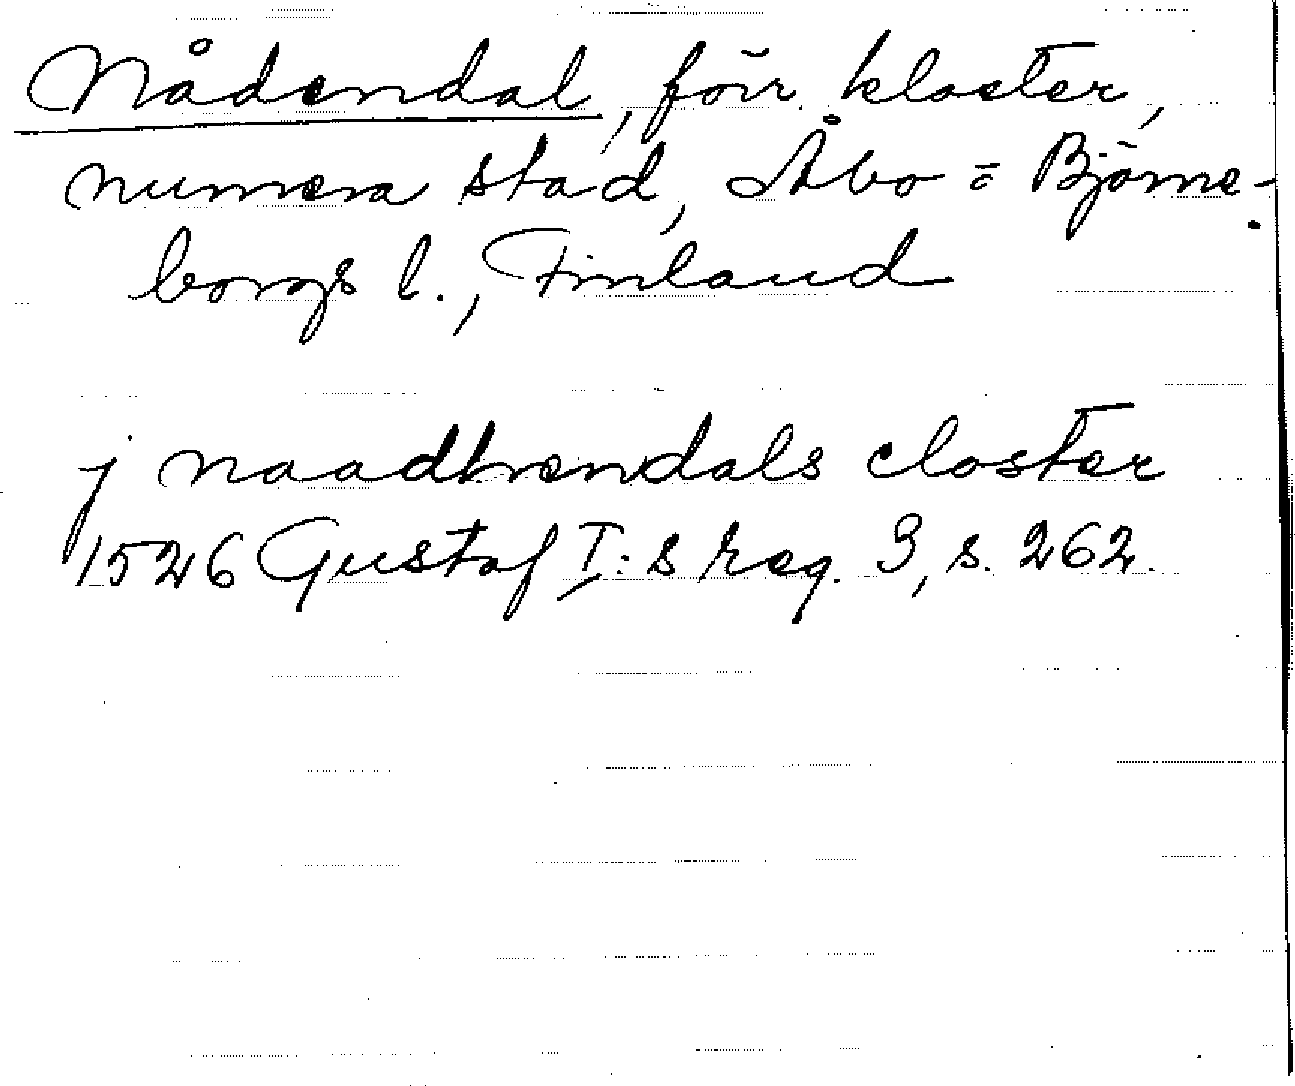 Nådendal, förr kloster,
numera stad, Åbo = Björne-
borgs l., Finland
j naadhendals closter
1526 Gustaf I:s reg. 3, s. 262.